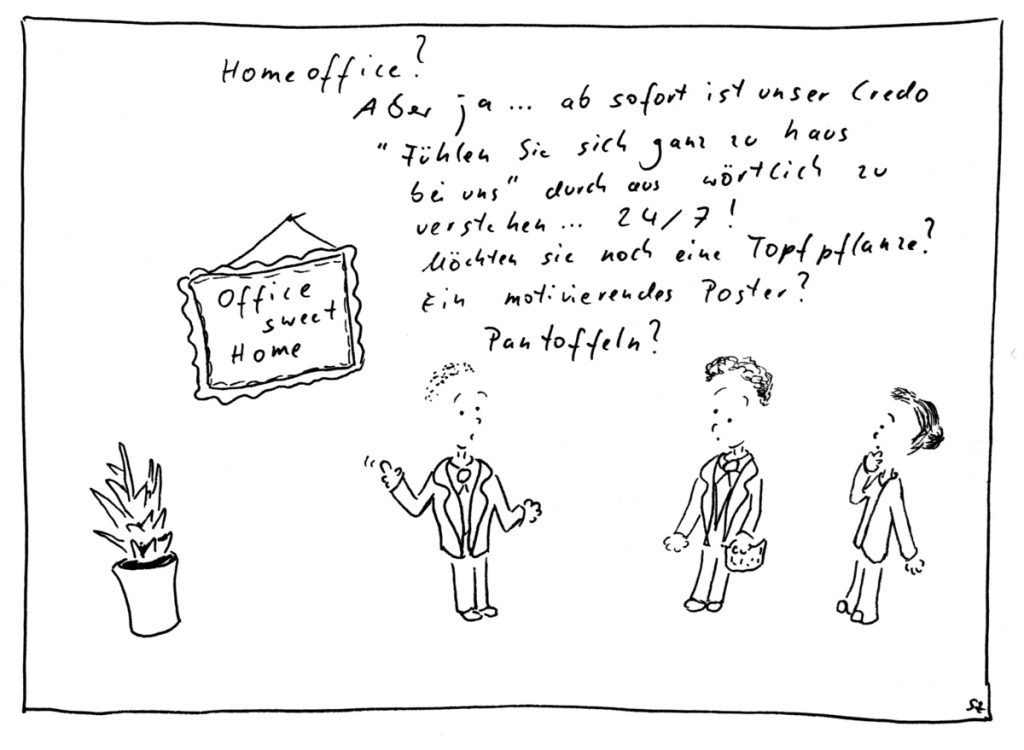 Homeoffice?
Aber ja... ab sofort ist unser Credo
"Fühlen Sie sich ganz zu haus
bei uns" durch aus wörtlich zu
verstehen... 24/7!
Möchten sie noch eine Topfpflanze?
Ein motivierendes Poster?
Pantoffeln?
Office
sweet
Home